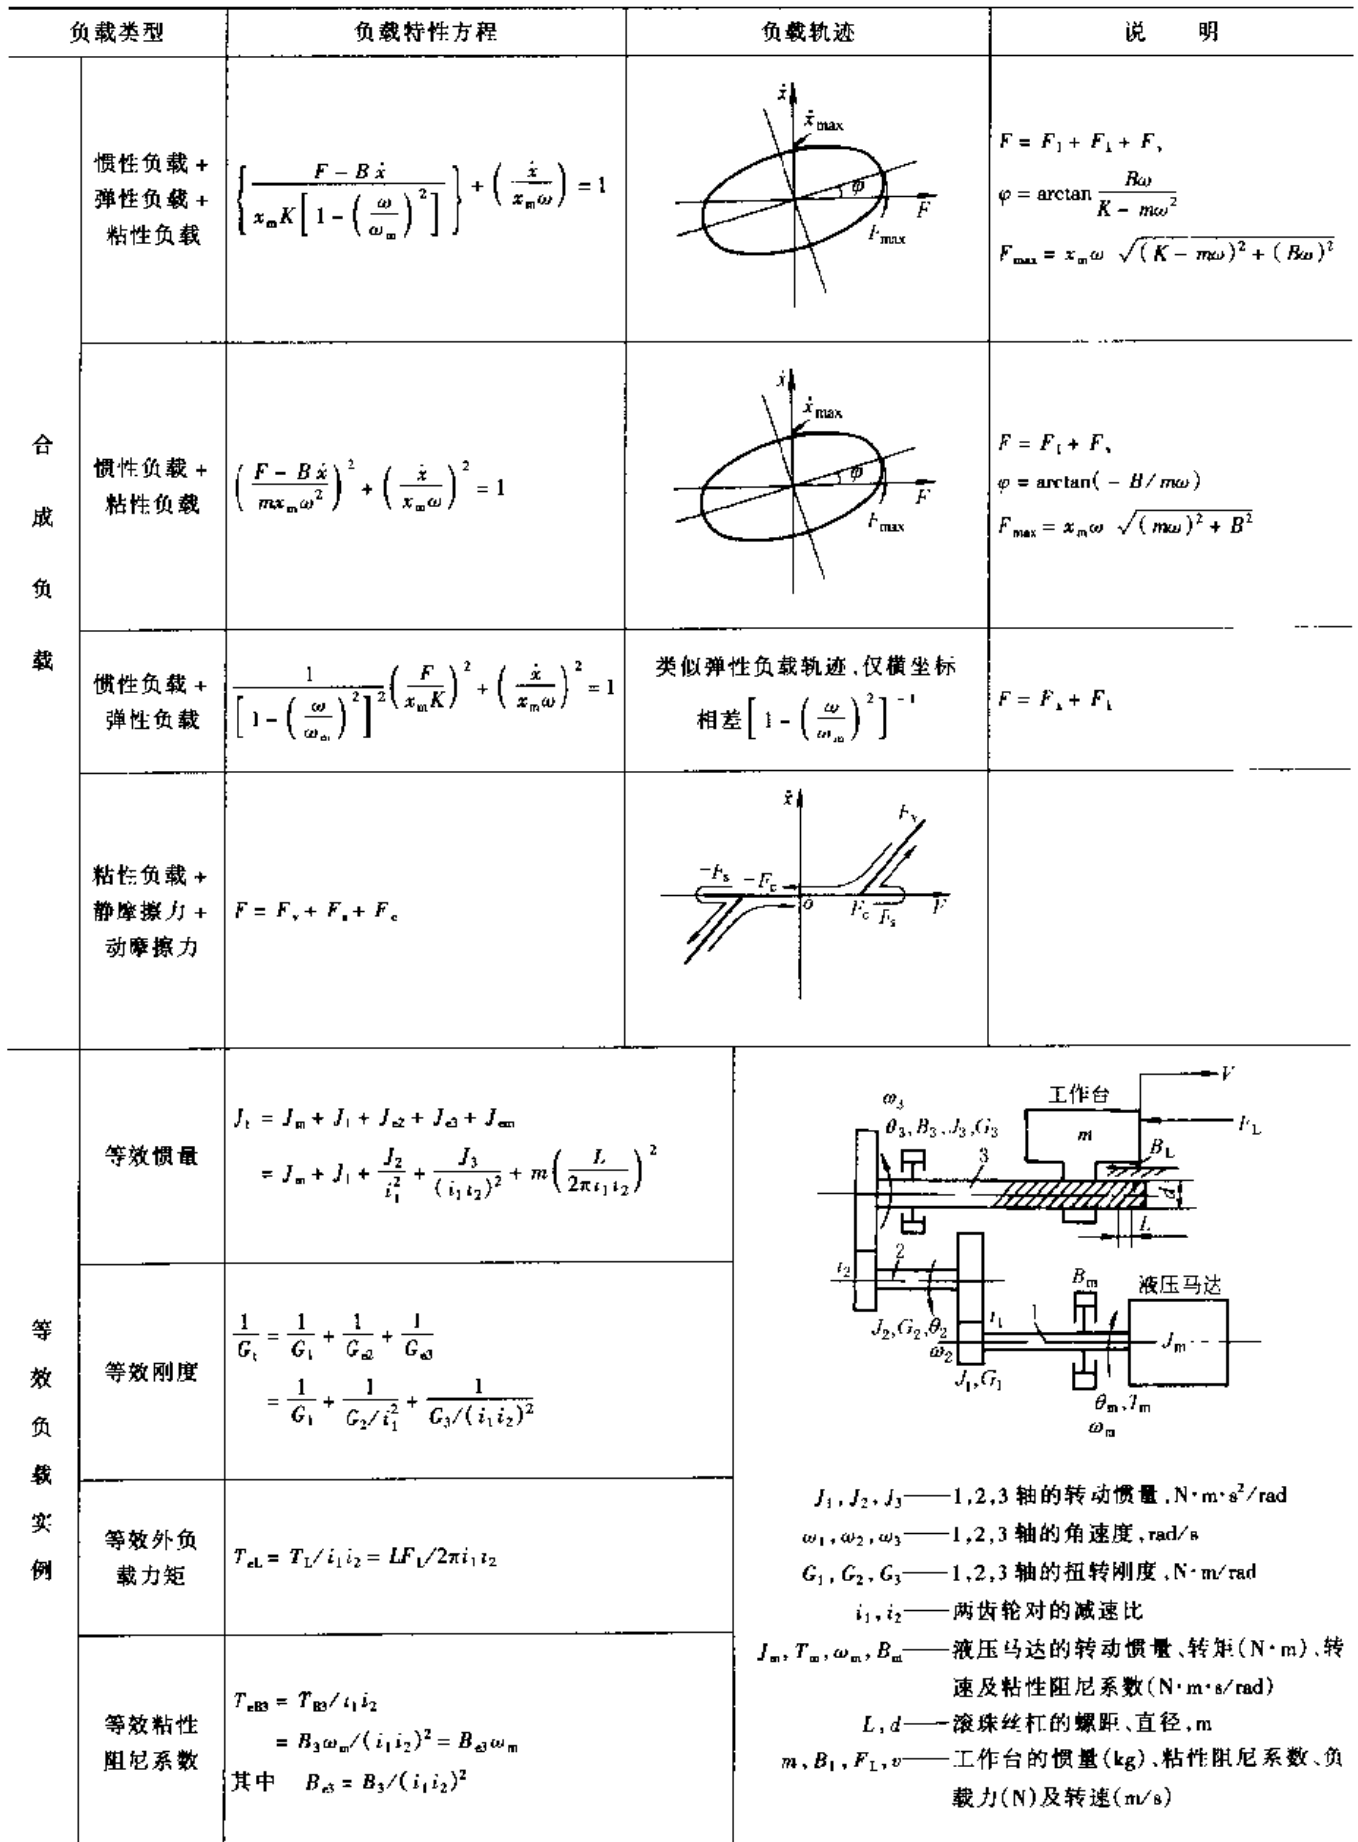 负载类型 负载特性方程 负载轨迹 说 明
合成负载
惯性负载 +
弹性负载 +
粘性负载
{ (F - Bẋ) / (x_m K[1 - (ω/ω_m)^2]) } + (ẋ/(x_m ω)) = 1
ẋ
ẋ_max
φ
F
F_max
F = F_1 + F_k + F_v
φ = arctan Bω/(K - mω^2)
F_max = x_m ω √((K - mω)^2 + (Bω)^2)
惯性负载 +
粘性负载
((F - Bẋ)/(m x_m ω^2))^2 + (ẋ/(x_m ω))^2 = 1
ẋ
ẋ_max
φ
F
F_max
F = F_1 + F_v
φ = arctan( - B/mω)
F_max = x_m ω √((mω)^2 + B^2)
惯性负载 +
弹性负载
1/[1 - (ω/ω_m)^2]^2 (F/(x_m K))^2 + (ẋ/(x_m ω))^2 = 1
类似弹性负载轨迹,仅横坐标
相差[1 - (ω/ω_m)^2]^-1
F = F_k + F_1
粘性负载 +
静摩擦力 +
动摩擦力
F = F_v + F_s + F_c
ẋ
F_v
-F_s -F_c
o F_c F_s F
等效负载实例
等效惯量
J_t = J_m + J_1 + J_e2 + J_e3 + J_em
= J_m + J_1 + J_2/i_1^2 + J_3/(i_1 i_2)^2 + m(L/(2πi_1 i_2))^2
等效刚度
1/G_t = 1/G_1 + 1/G_e2 + 1/G_e3
= 1/G_1 + 1/(G_2/i_1^2) + 1/(G_3/(i_1 i_2)^2)
等效外负
载力矩
T_eL = T_L/i_1 i_2 = LF_L/2πi_1 i_2
等效粘性
阻尼系数
T_eB3 = T_B3/i_1 i_2
= B_3 ω_m/(i_1 i_2)^2 = B_e3 ω_m
其中 B_e3 = B_3/(i_1 i_2)^2
V
工作台
ω_3
F_L
θ_3, B_3, J_3, G_3
m
B_L
3
d
L
2
i_2
B_m
液压马达
J_2, G_2, θ_2
i_1
1
J_m
ω_2
J_1, G_1
θ_m, T_m
ω_m
J_1, J_2, J_3——1,2,3 轴的转动惯量,N·m·s^2/rad
ω_1, ω_2, ω_3——1,2,3 轴的角速度,rad/s
G_1, G_2, G_3——1,2,3 轴的扭转刚度,N·m/rad
i_1, i_2——两齿轮对的减速比
J_m, T_m, ω_m, B_m——液压马达的转动惯量、转矩(N·m)、转
速及粘性阻尼系数(N·m·s/rad)
L, d——滚珠丝杠的螺距、直径,m
m, B_L, F_L, v——工作台的惯量(kg)、粘性阻尼系数、负
载力(N)及转速(m/s)